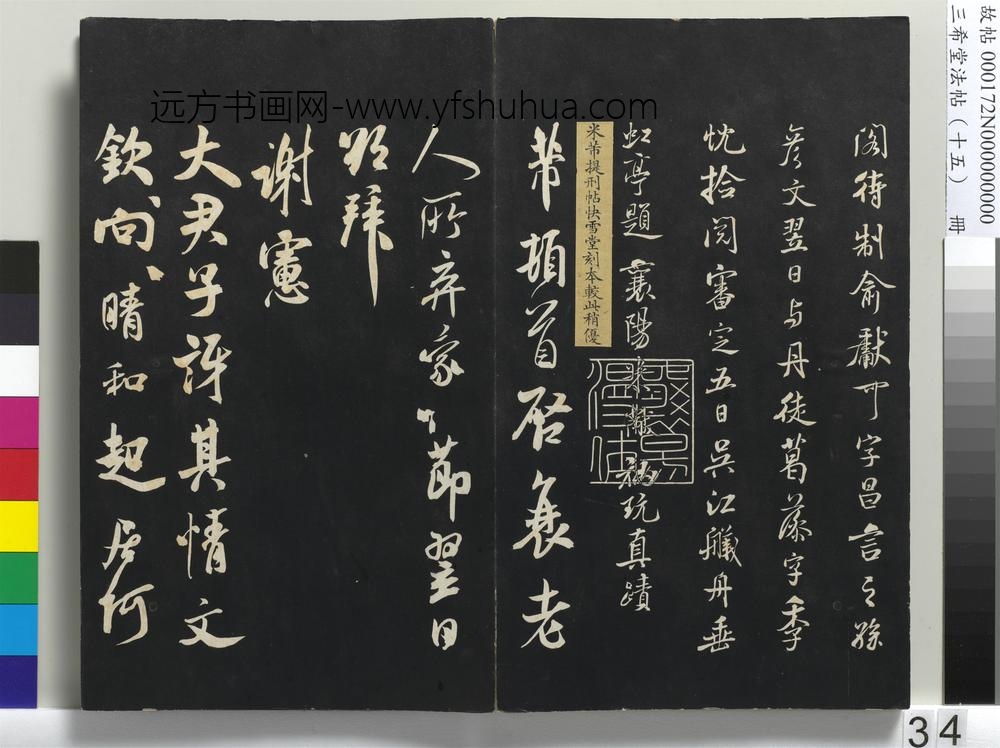 閣待制俞獻可字昌言之孫
彥文翌日与丹徒葛藻字季
忱拾閱審定五日吳江艤舟垂
虹亭題 襄陽米黻秘玩真蹟
米芾提刑帖快雪堂刻本較此稍優
芾頓首啓衰老
人所弃家〻節翌日
即拜
謝憲
大尹子訝其情文
欽向〻晴和起居何
远方书画网-www.yfshuhua.com
故帖 000172N000000000
三希堂法帖（十五） 冊
34